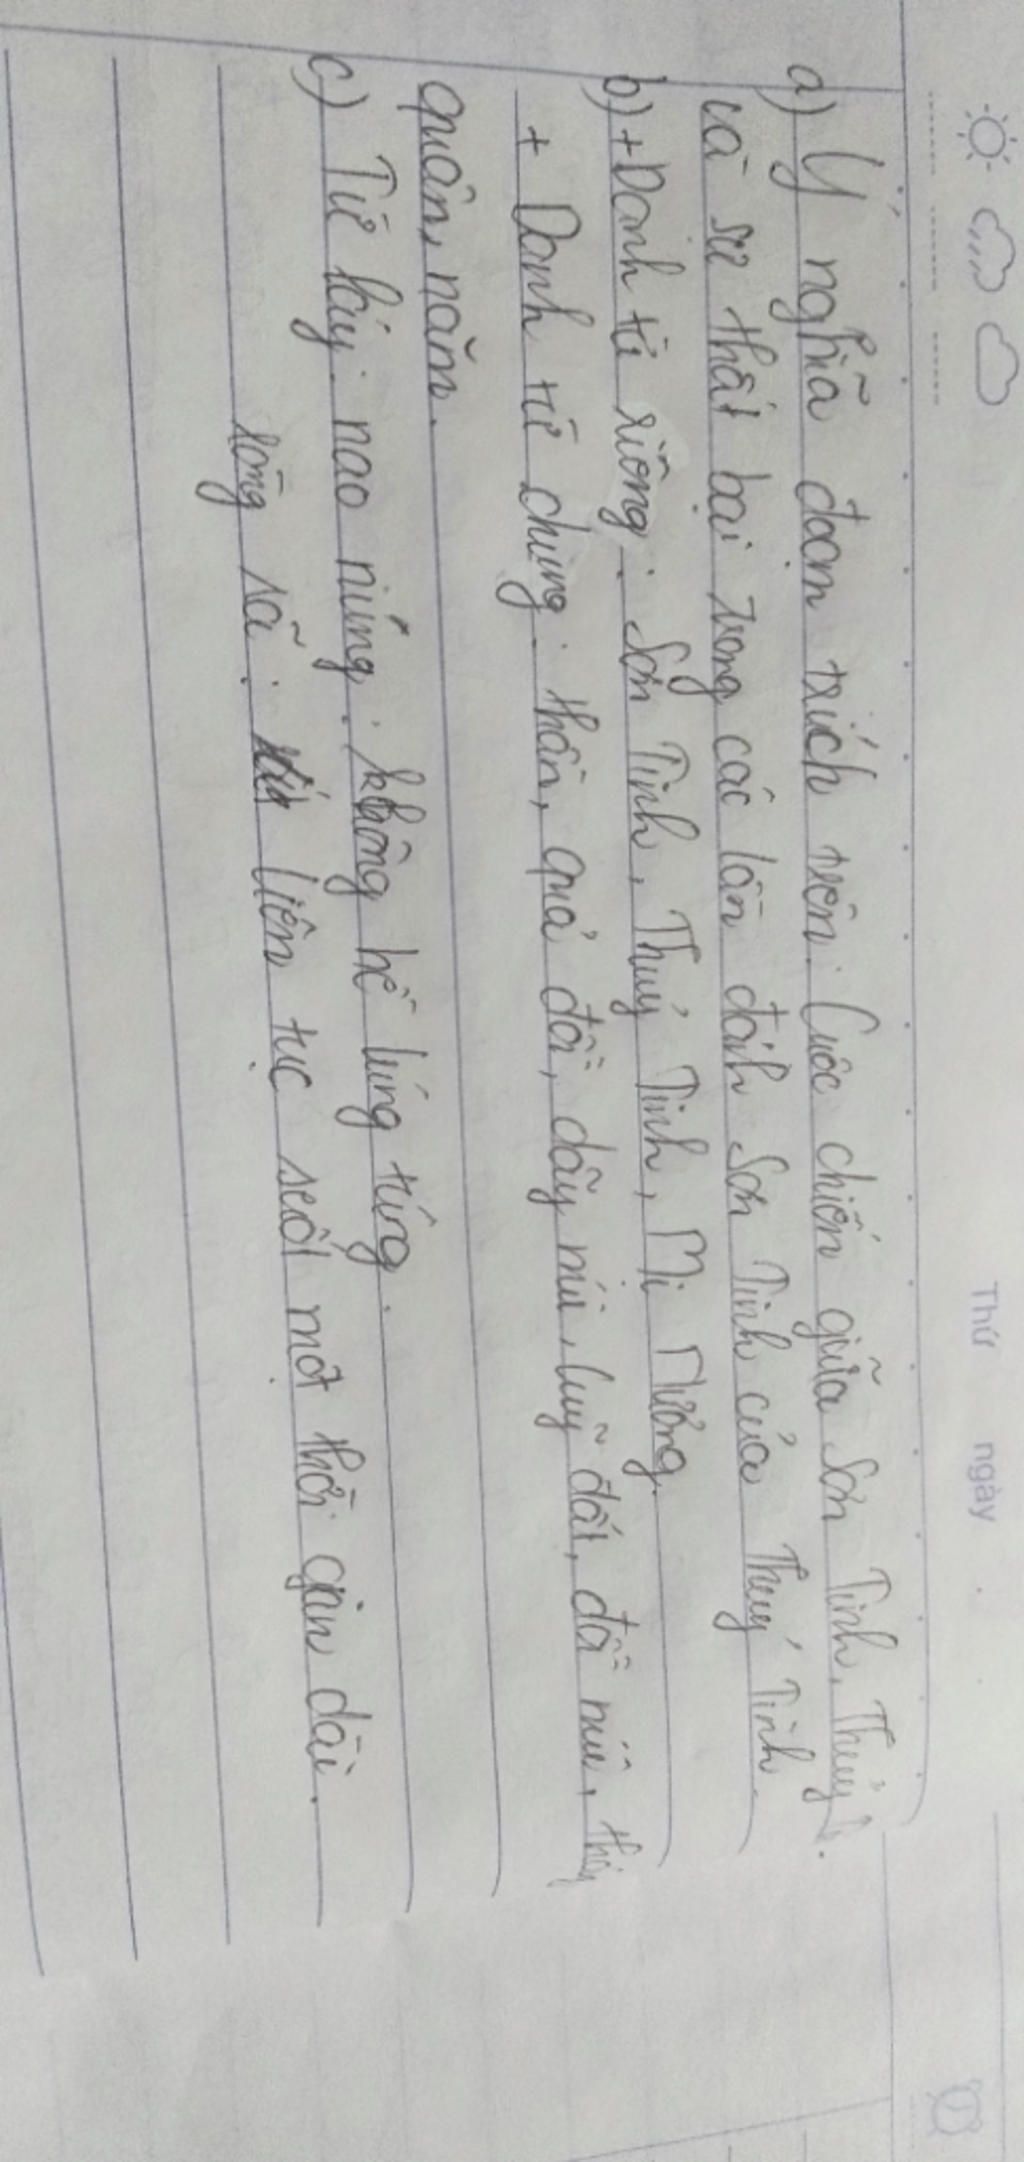 Thứ ngày
a) Ý nghĩa đoạn trích trên: Cuộc chiến giữa Sơn Tinh, Thuỷ
và sự thất bại trong các lần đánh Sơn Tinh của Thuỷ Tinh.
b) + Danh từ riêng: Sơn Tinh, Thuỷ Tinh, Mị Nương.
+ Danh từ chung: thần, quả đồi, dãy núi, luỹ đất, đồi núi,
quân, năm.
c) Từ láy: nao núng: không hề lúng túng.
ròng rã: liên tục suốt một thời gian dài.